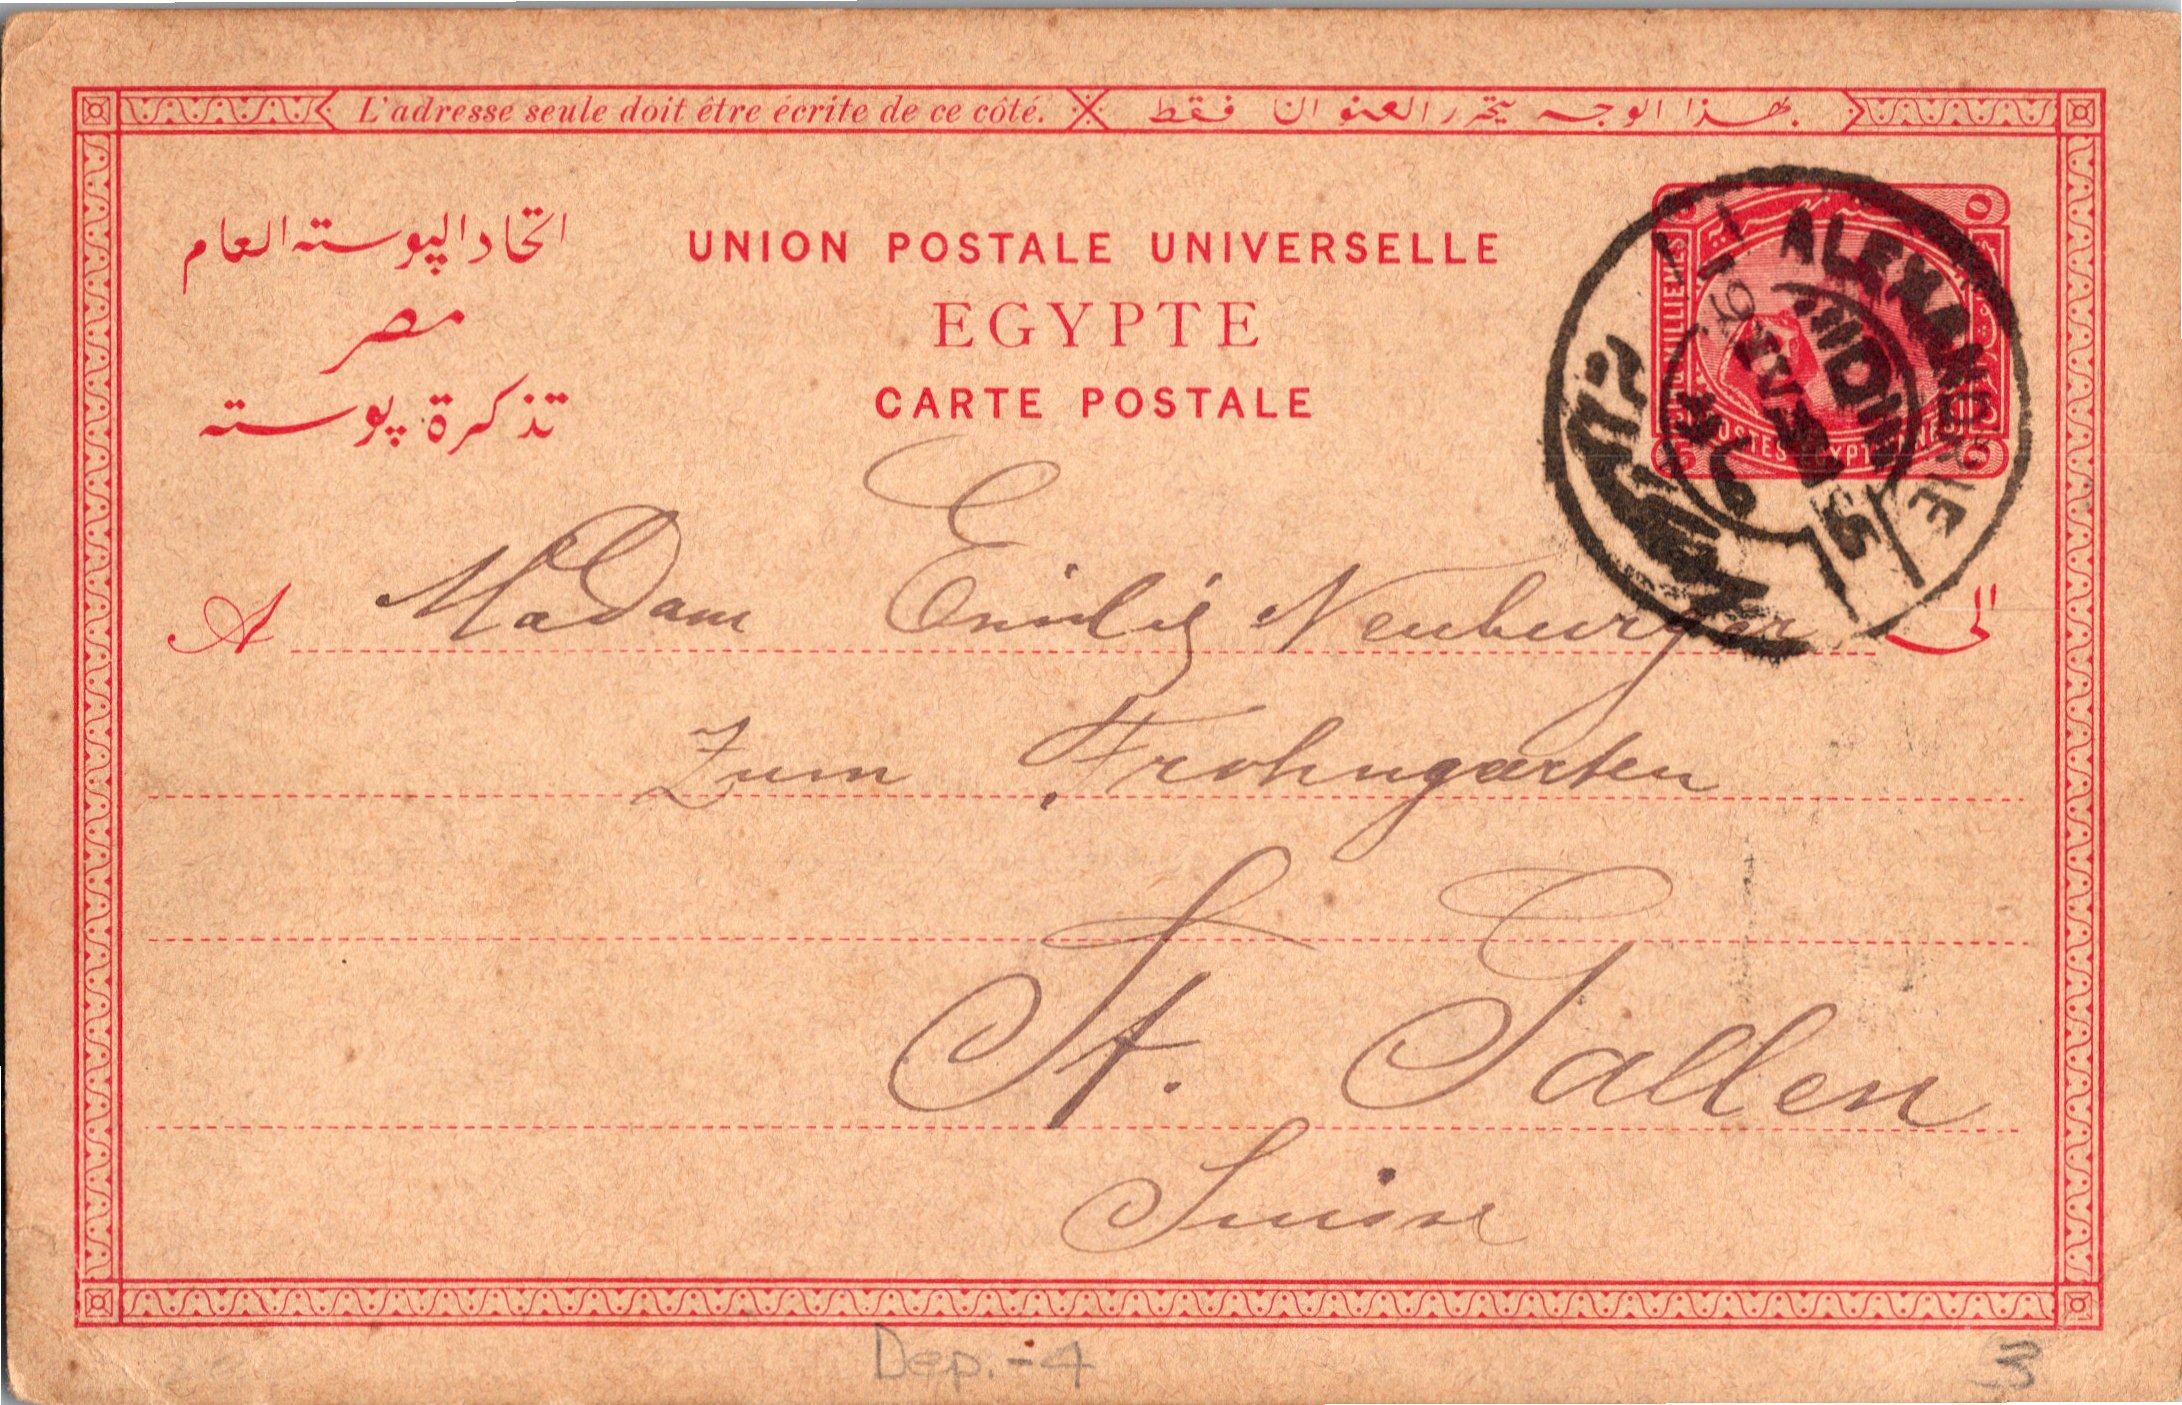 L'adresse seule doit être écrite de ce côté. بهذا الوجه يتحرر العنوان فقط
اتحاد الپوسته العام
مصر
تذكرة پوسته
UNION POSTALE UNIVERSELLE
EGYPTE
CARTE POSTALE
ALEXANDRIE
MILLIEMES
POSTES EGYPTIENNES
A Madam Emilie Neuburger الى
Zum Frohngarten
St. Gallen
Suisse
Dep.-4
3